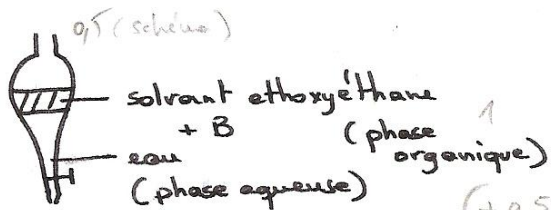 0,5 (schéma)
solvant ethoxyéthane
+ B (phase organique) 1
eau
(phase aqueuse)
(+0,5